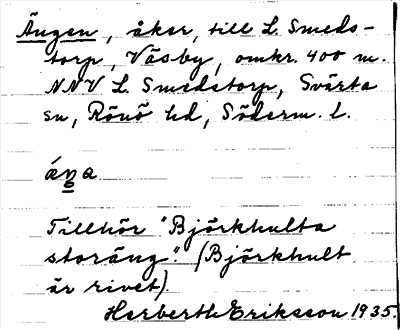 Ängen, åker, till L. Smeds-
torp, Väsby, omkr. 400 m.
NNV L. Smedstorp, Svärta
sn, Rönö hd, Söderm. l.
áŋa
Tillhör "Björkhulta
storäng". (Björkhult
är rivet)
Herbert Eriksson 1935.